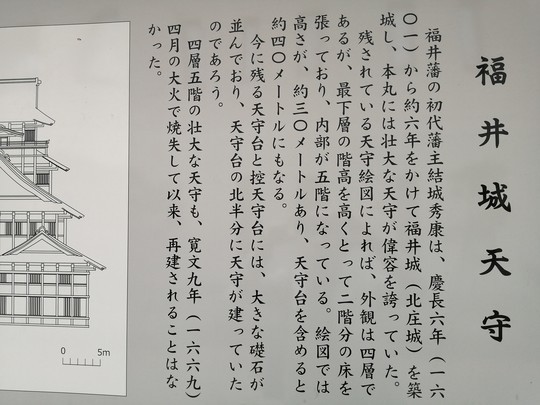 福井城天守
福井藩の初代藩主結城秀康は、慶長六年（一六
〇一）から約六年をかけて福井城（北庄城）を築
城し、本丸には壮大な天守が偉容を誇っていた。
残されている天守絵図によれば、外観は四層で
あるが、最下層の階高を高くとって二階分の床を
張っており、内部が五階になっている。絵図では
高さが、約三〇メートルあり、天守台を含めると
約四〇メートルにもなる。
今に残る天守台と控天守台には、大きな礎石が
並んでおり、天守台の北半分に天守が建っていた
のであろう。
四層五階の壮大な天守も、寛文九年（一六六九）
四月の大火で焼失して以来、再建されることはな
かった。
0 5m